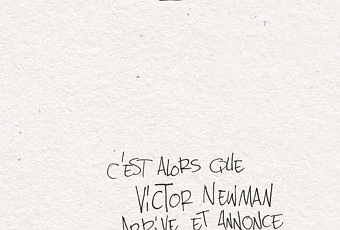 C'EST ALORS QUE
VICTOR NEWMAN
ARRIVE ET ANNONCE